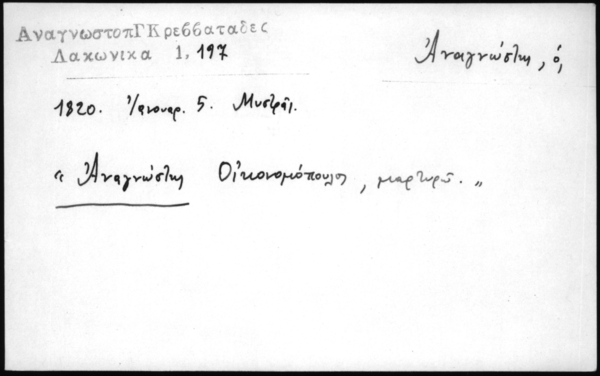 ΑναγνωστοπΓΚρεββαταδες
Λακωνικα 1, 197
Ἀναγνώστης, ὁ,
1820. Ἰανουαρ. 5. Μυστρᾶς.
« Ἀναγνώστης Οἰκονομόπουλος, μαρτυρῶ. »